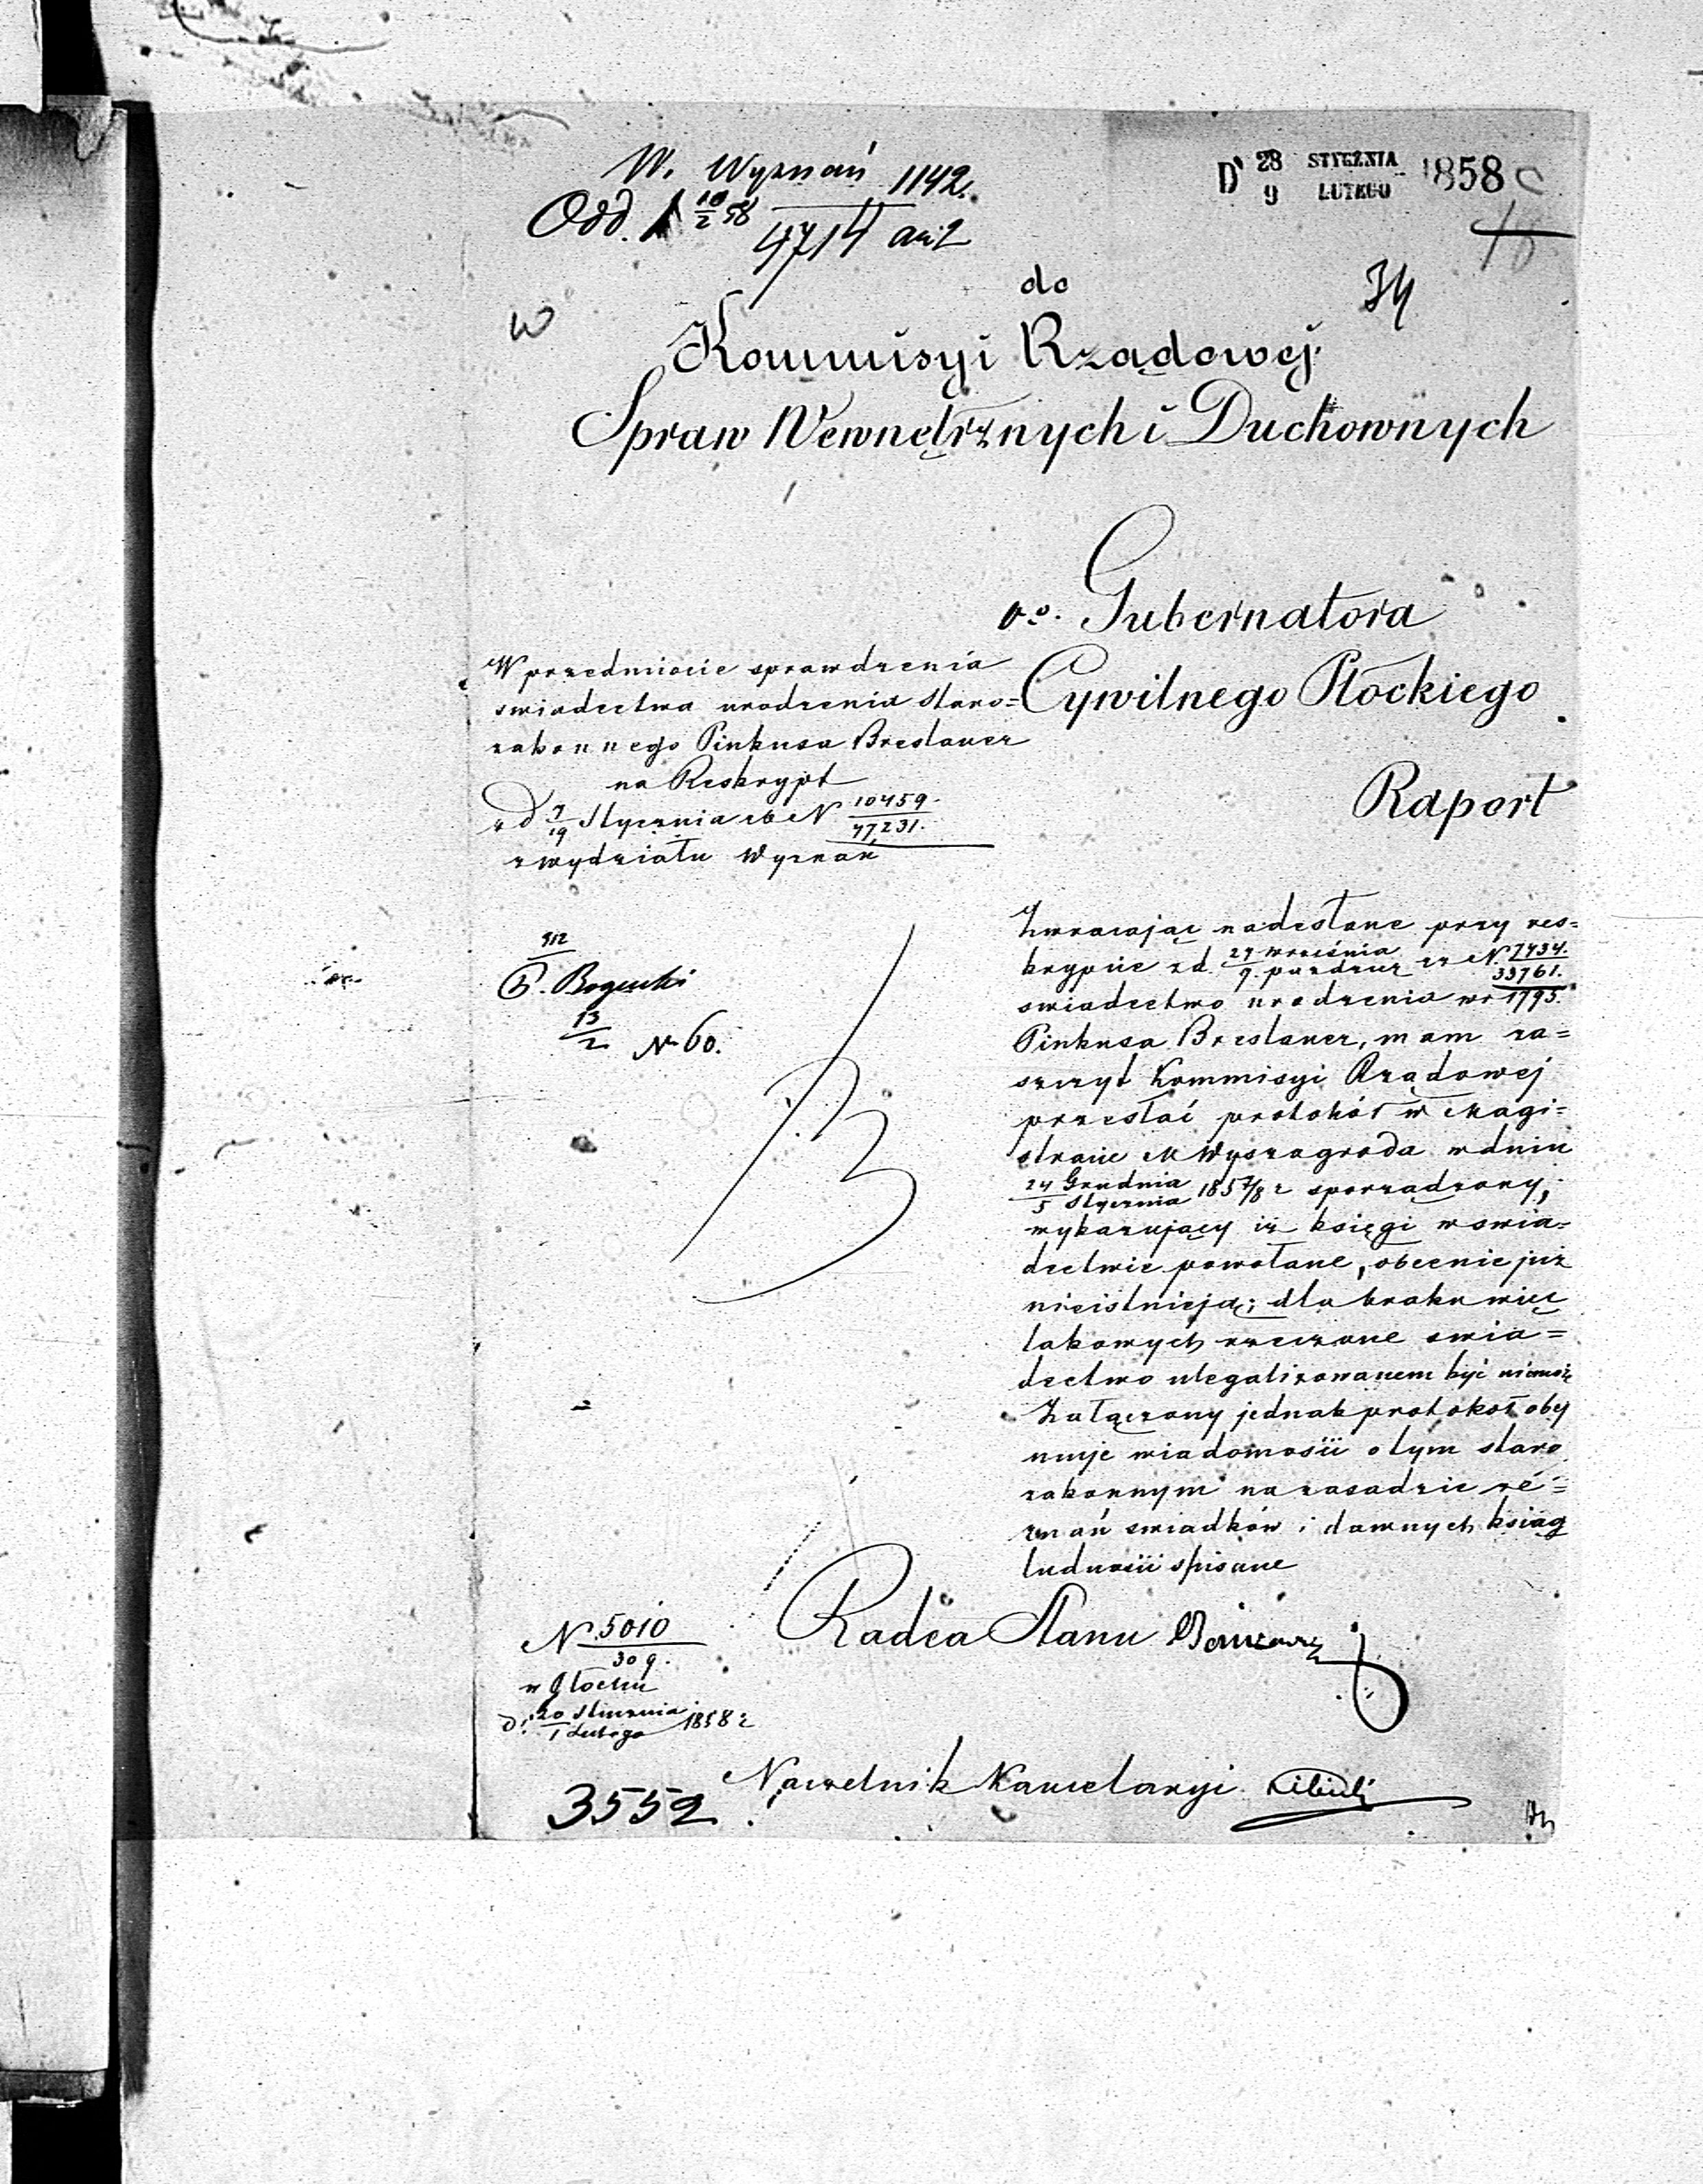 W. Wyznań 1142.
Odd. 1 10/2 58 4714 an: 2
D. 28 STYCZNIA 1858
9 LUTEGO
34
do
w
Kommisyi Rządowej
Spraw Wewnętrznych i Duchownych
Gubernatora
Cywilnego Płockiego
Raport
W przedmiocie sprawdzenia
swiadectwa urodzenia staro=
zakonnego Pinkusa Breslauer
na Reskrypt
z d 7/19 Stycznia rb N 10459/47231.
z wydziału Wyznań
912
P. Bogucki
13/2 N 60.
Zwracając nadesłane przy res=
krypcie z d. 27 września/9. paźdz za N. 7434./33761.
swiadectwo urodzenia w r 1795.
Pinkusa Breslauer, mam za=
szczyt Kommisyi Rządowej
przesłać protokół w Magi=
stracie M Wyszagroda w dniu
24 Grudnia/5 Stycznia 1857/8 r sporządzony,
wykazujący iż księgi w swia=
dectwie powołane, obecnie już
nieistnieją; dla braku więc
takowych rzeczone swia=
dectwo ulegalizowanem być niemoże
Załączony jednak protokół obej
muje wiadomości o tym staro
zakonnym na zasadzie ze=
znań swiadków i dawnych ksiąg
ludności spisane
Radca Stanu
N. 5010/309.
w Płocku
d. 20 Stycznia/1 Lutego 1858 r
Naczelnik Kancelaryi
3552